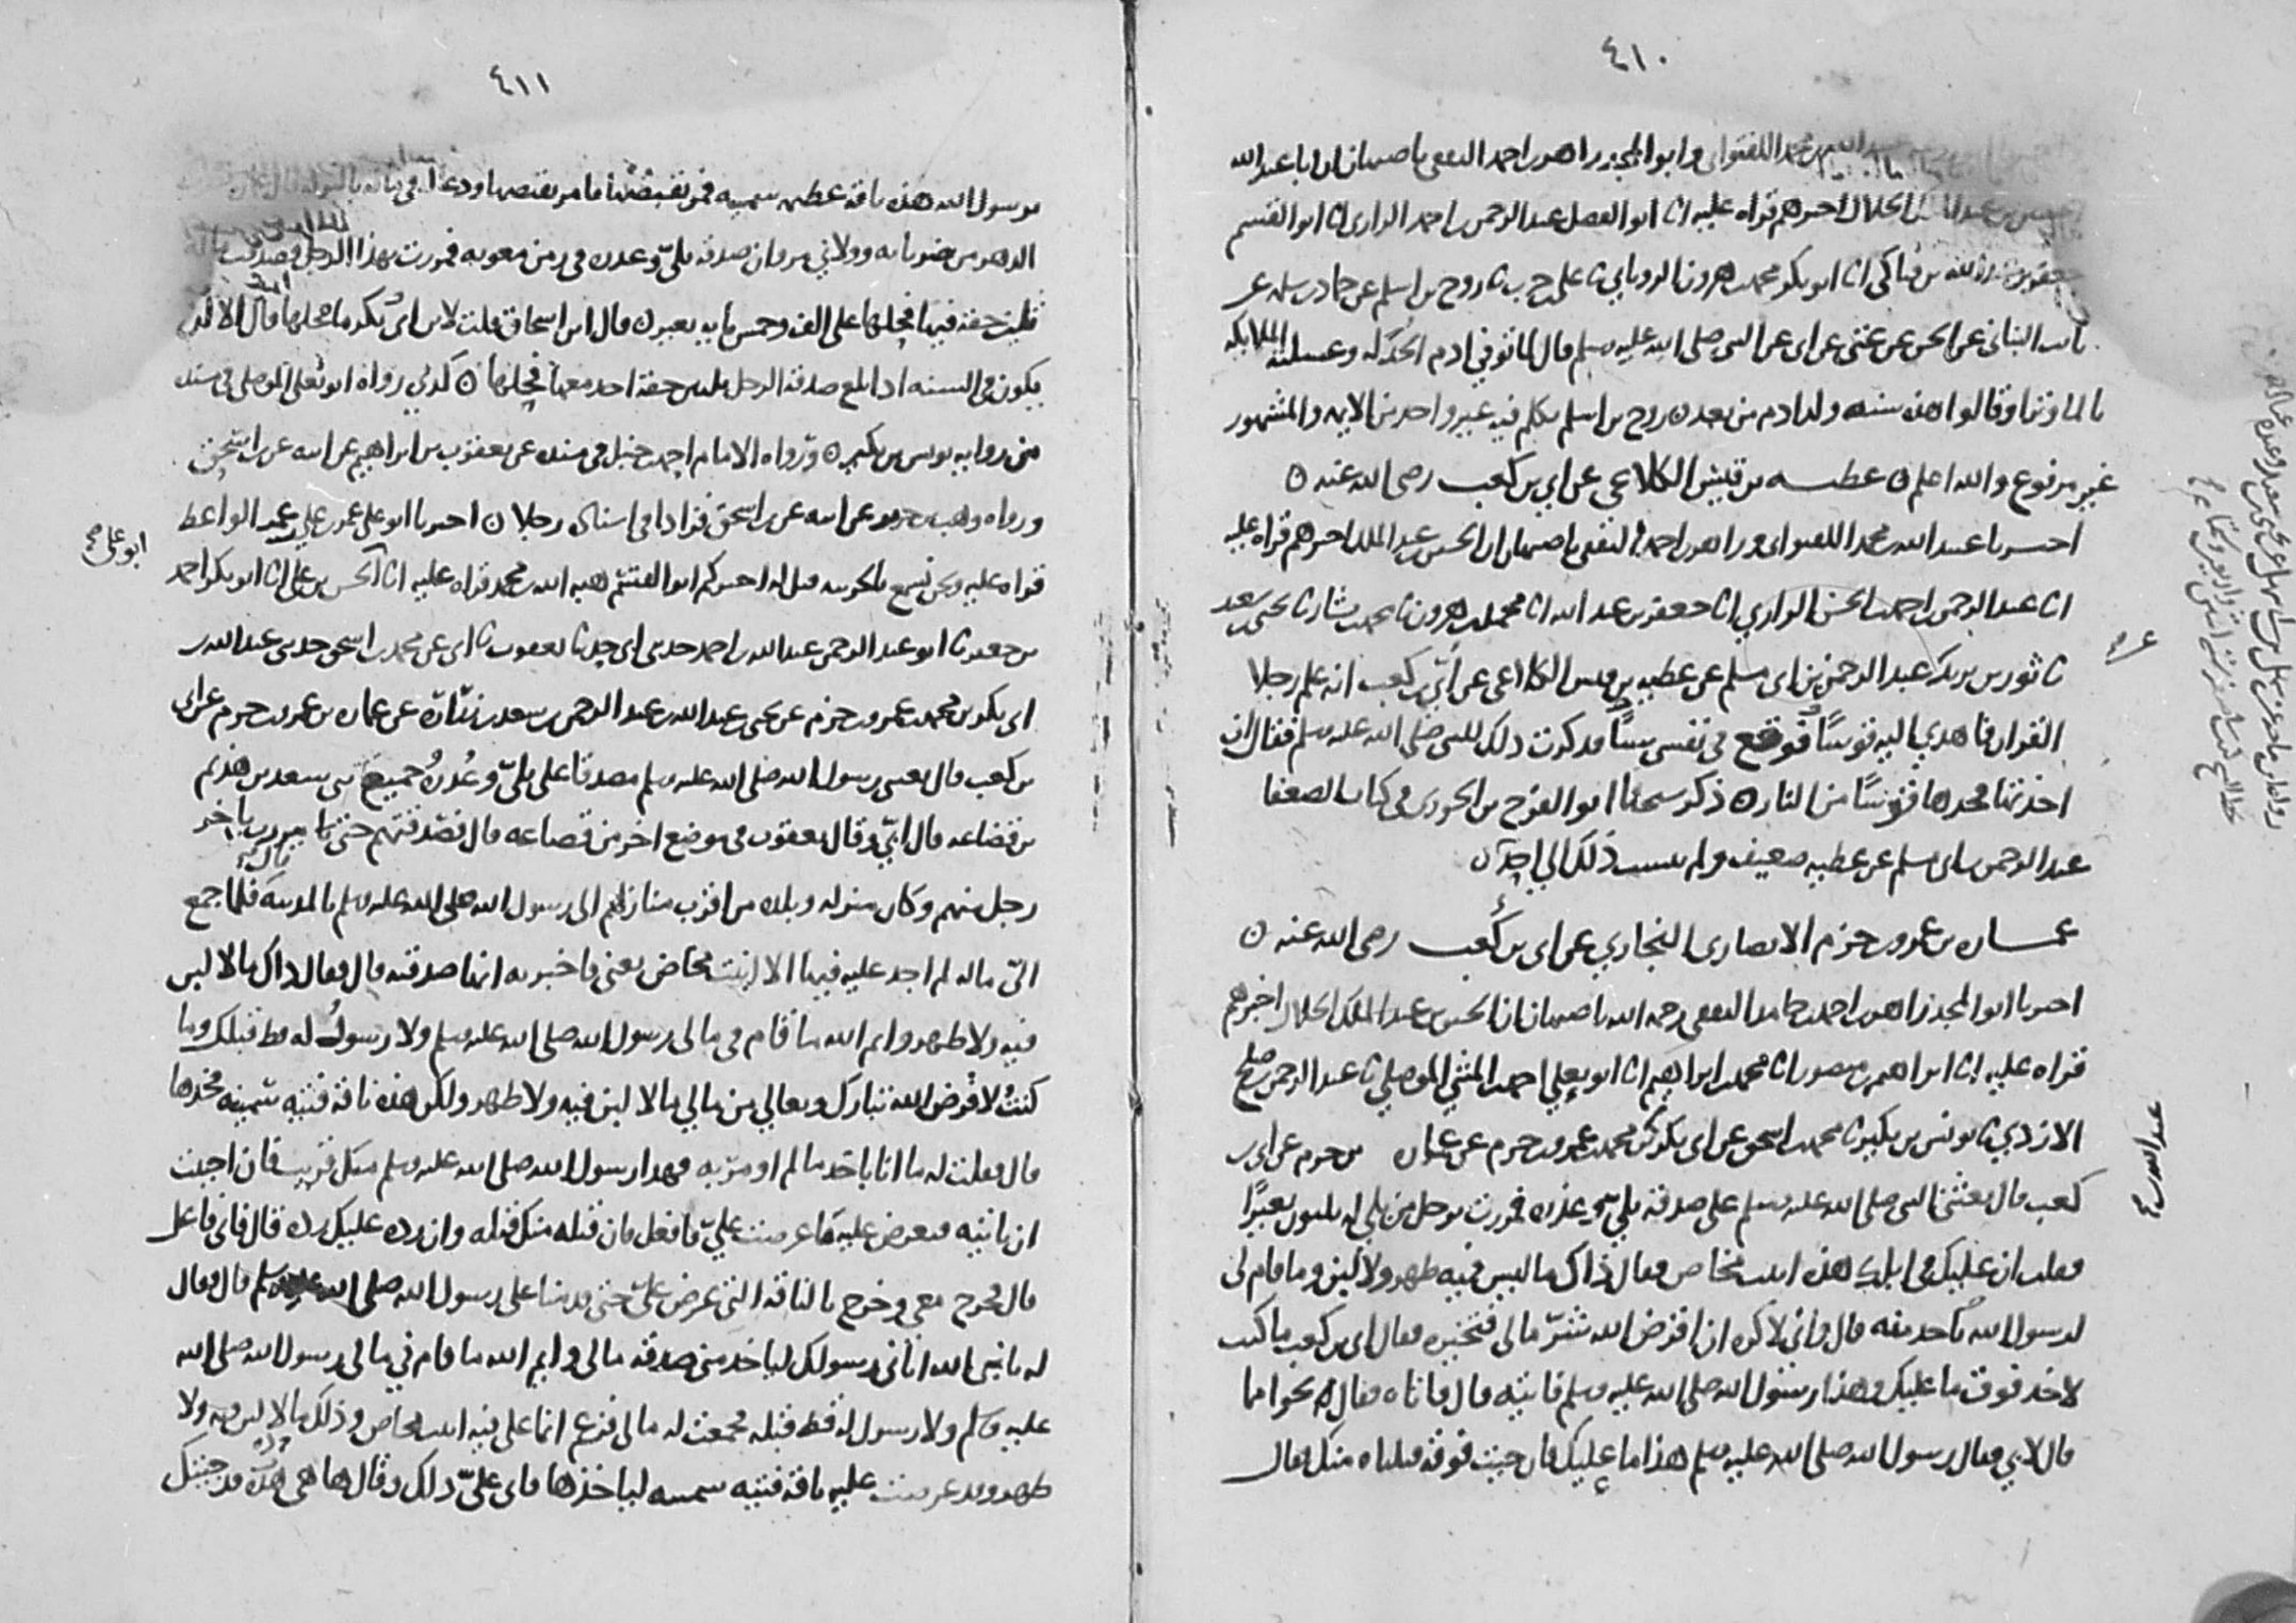 ٤١٠
محمد اللفتواني وابو المجد زاهر بن احمد الثقفي باصبهان ان ابا عبد الله
الخلال اخبرهم قراه عليه انا ابو الفضل عبد الرحمن بن احمد الرازي انا ابو القسم
جعفر بن عبد الله بن فناكي انا ابو بكر محمد بن هرون الروياني نا علي بن حرب نا روح بن اسلم عن حماد بن سلمه عن
ثابت البناني عن الحسن عن عتي عن ابي عن النبي صلى الله عليه وسلم قال لما توفي ادم الحد له وغسلته الملايكه
بالما وترا وقالوا هذه سنه ولد ادم من بعده ٥ روح بن اسلم تكلم فيه غير واحد من الايمه والمشهور
غير مرفوع والله اعلم ٥ عطيه بن قيس الكلاعي عن ابي بن كعب رضي الله عنه ٥
اخبرنا عبيد الله بن محمد اللفتواني وزاهر بن احمد الثقفي باصبهان ان الحسين بن عبد الملك اخبرهم قراه عليه
انا عبد الرحمن بن احمد بن الحسن الرازي انا جعفر بن عبد الله انا محمد بن هرون نا محمد بن بشار نا يحيى بن سعيد
نا ثور بن يزيد عبد الرحمن بن ابي مسلم عن عطيه بن قيس الكلاعي عن ابي بن كعب انه علم رجلا
القران فاهدي اليه قوسا فوقع في نفسي شيا فذكرت ذلك للنبي صلى الله عليه وسلم فقال ان
اخذتها فخذها قوسا من النار ٥ ذكر شيخنا ابو الفرج بن الجوزي في كتاب الضعفا
عبد الرحمن بن ابي مسلم عن عطيه ضعيف ولم ينسب ذلك الى احد ٥
عماره بن عمرو بن حزم الانصاري النجاري عن ابي بن كعب رضي الله عنه ٥
اخبرنا ابو المجد زاهر بن احمد بن حامد الثقفي رحمه الله باصبهان ان الحسين بن عبد الملك الخلال اخبرهم
قراه عليه انا ابراهيم بن منصور انا محمد بن ابراهيم انا ابو يعلي احمد بن المثني الموصلي نا عبد الرحمن بن صلح
الازدي نا يونس بن بكير نا محمد بن اسحق عن ابي بكر بن محمد بن عمرو بن حزم عن عماره بن حزم عن ابي بن
كعب قال بعثني النبي صلى الله عليه وسلم على صدقه بلي وعذره فمررت برجل من بلي له ثلثون بعيرا
فقلت ان عليك في ابلك هذه ابنت مخاض فقال ذاك ما ليس فيه ظهر ولا لبن وما قام لي
لرسول الله ياخذ منه قال واني لاكره ان اقرض الله شر مالي فتخيره فقال ابي بن كعب ما كنت
لاخذ فوق ما عليك وهذا رسول الله صلى الله عليه وسلم فاتيه قال فاتاه فقال نحوا مما
قال لابي فقال رسول الله صلى الله عليه وسلم هذا ما عليك فان جيت فوقه قبلناه منك فقال
عبد الله بن
٤١١
يرسول الله هذه ناقه عظيمه سمينه فمر بقبضها فامر بقبضها ودعا له في ماله بالبركه قال عماره
الدهر من ضرباته وولاني مروان صدقه بلي وعذره في زمن معويه فمررت بهذا الرجل فصدقت
ثلثين حقه فيها فحلها على الف وخمس مايه بعير ٥ قال ابن اسحاق قلت لابن ابي بكر ما فحلها قال الا ان
يكون في السنه اذا بلغ صدقه الرجل ثلثين حقه اخذ معها فحلها ٥ كذي رواه ابو يعلي الموصلي في مسنده
من روايه يونس بن بكير ٥ ورواه الامام احمد بن حنبل في مسنده عن يعقوب بن ابراهيم عن ابيه عن بن اسحق
ورواه وهب بن جرير عن ابيه عن بن اسحق فزادا في اسناده رجلا ٥ اخبرنا ابو علي عمر بن علي بن عمر الواعظ
قراه عليه ونحن نسمع بالحربيه قيل له اخبركم ابو القسم هبه الله بن محمد قراه عليه انا الحسن بن علي انا ابو بكر احمد
بن جعفر نا ابو عبد الرحمن عبد الله بن احمد حدثني ابي حدثنا يعقوب نا ابي عن محمد بن اسحق حدثني عبد الله بن
ابي بكر بن محمد بن عمرو بن حزم عن يحيى بن عبد الله بن عبد الرحمن بن سعد بن زراره عن عماره بن عمرو بن حزم عن ابي
بن كعب قال بعثني رسول الله صلى الله عليه وسلم مصدقا على بلي وعذره وجميع بني سعد بن هذيم
بن قضاعه قال ابي وقال يعقوب في موضع اخر من قضاعه قال فصدقتهم حتى مررت باخر
رجل منهم وكان منزله وبلده من اقرب منازلهم الى رسول الله صلى الله عليه وسلم بالمدينه قال فلما جمع
الي ماله لم اجد عليه فيها الا ابنت مخاض يعني فاخبرته انها صدقته قال فقال ذاك ما لا لبن
فيه ولا ظهر وايم الله ما قام في مالي رسول الله صلى الله عليه وسلم ولا رسول له قط قبلك وما
كنت لاقرض الله تبارك وتعالي من مالي ما لا لبن فيه ولا ظهر ولكن هذه ناقه فتيه سمينه فخذها
قال فقلت له ما انا باخذ ما لم اومر به فهذا رسول الله صلى الله عليه وسلم منك قريب فان احببت
ان تاتيه فتعرض عليه ما عرضت علي فافعل فان قبله منك قبله وان رده عليك رده قال فاني فاعل
قال فخرج معي وخرج بالناقه التي عرض علي حتى قدمنا على رسول الله صلى الله عليه وسلم قال فقال
له يا نبي الله اتاني رسولك لياخذ مني صدقه مالي وايم الله ما قام في مالي رسول الله صلى الله
عليه وسلم ولا رسول له قط قبله فجمعت له مالي فزعم انما علي فيه ابنت مخاض وذلك ما لا لبن فيه ولا
ظهر وقد عرضت عليه ناقه فتيه سمينه لياخذها فابي علي ذلك وقال ها هي هذه قد جيتك
ابو علي